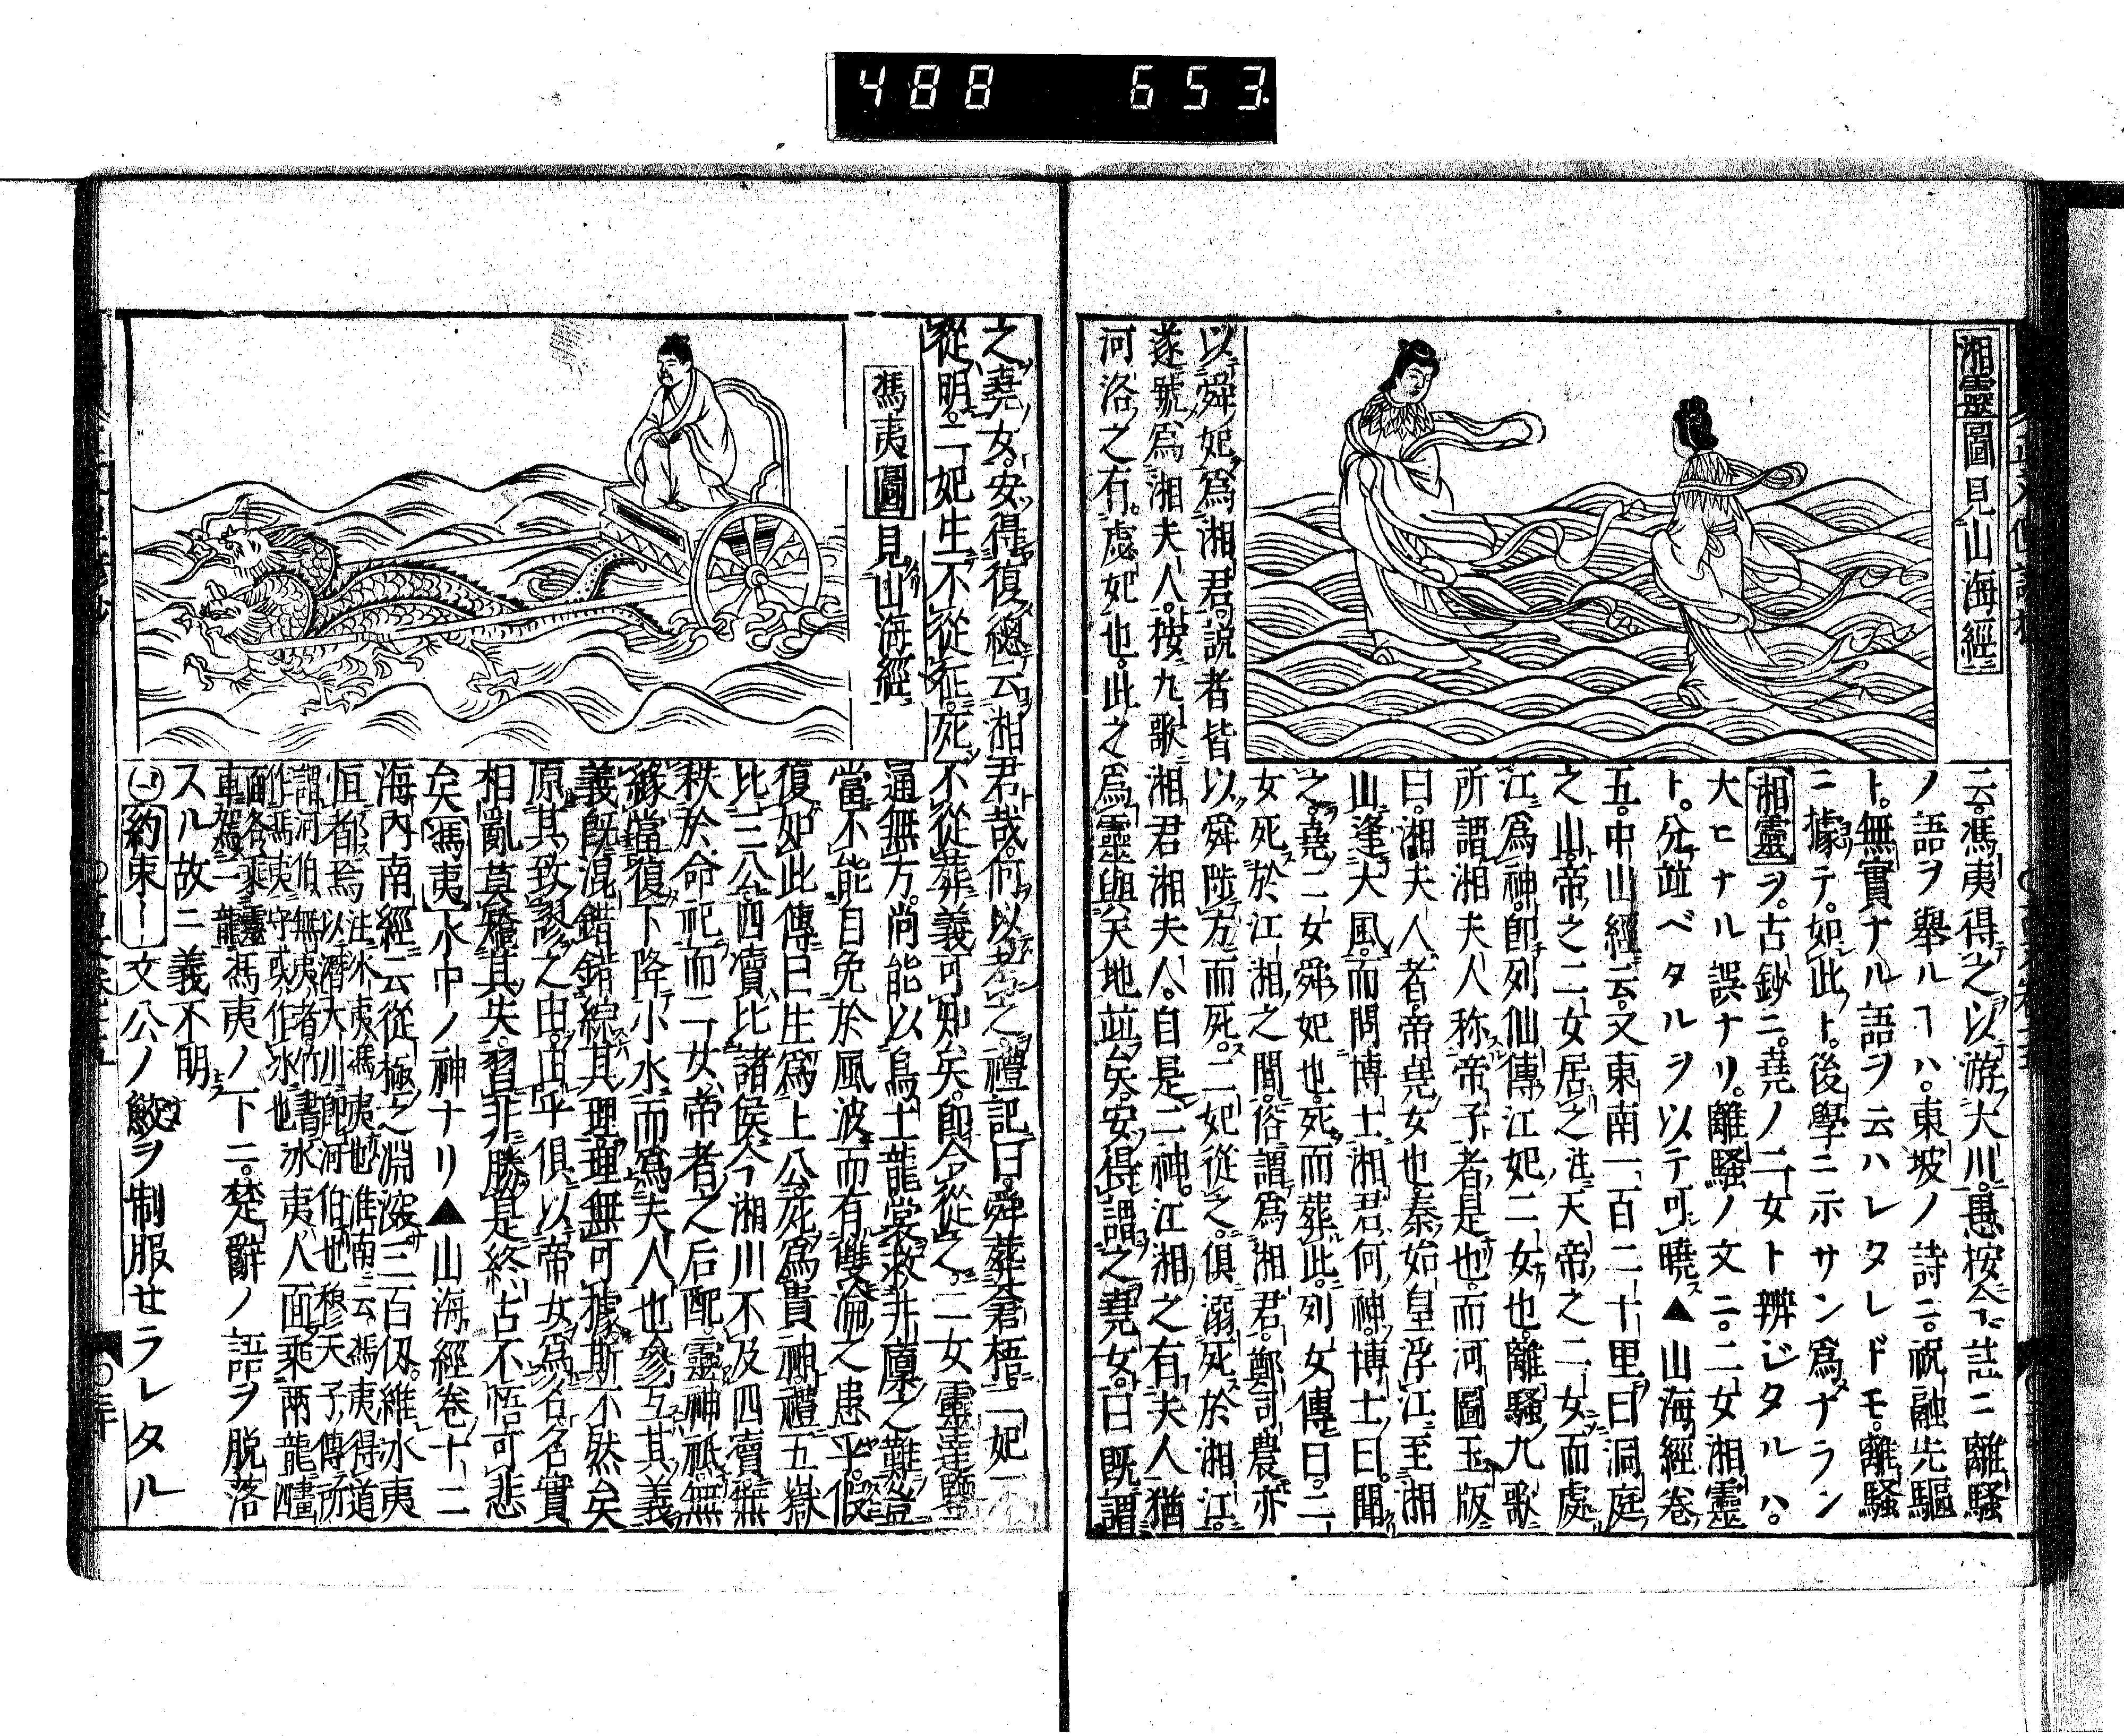 488 653
湘靈圖見山海經
云。馮夷得之以游大川。愚按今ノ註ニ離騷
ノ語ヲ舉ルヿハ。東坡ノ詩ニ。祝融先驅
ト。無實ナル語ヲ云ハレタレドモ。離騷
ニ據テ。如此ト。後學ニ示サン爲ナラン
湘靈ヲ。古鈔ニ。堯ノ二女ト辨ジタルハ。
大ヒナル誤ナリ。離騷ノ文ニ。二女湘靈
ト。分竝ベタルヲ以テ可曉▲山海經卷
五。中山經云。又東南一百二十里曰洞庭
之山。帝之二女居之註天帝之二女而處
江爲神。即列仙傳江妃二女也。離騷九歌
所謂湘夫人称帝子者是也。而河圖玉版
曰。湘夫人者。帝堯女也。秦始皇浮江至湘
山逢大風。而問博士湘君何神。博士曰。聞
之。堯二女舜妃也。死而葬此。列女傳曰。二
女死於江湘之間。俗謂爲湘君。鄭司農亦
以舜妃爲湘君。說者皆以舜陟方而死。二妃從之。俱溺死於湘江。
遂號爲湘夫人。按九歌湘君湘夫人。自是二神。江湘之有夫人猶
河洛之有虙妃也。此之爲靈與天地竝矣。安得謂之堯女。曰既謂
之堯女。安得復總云湘君哉。何以考之。禮記曰。舜葬蒼梧二妃不
從。明二妃生不從征。死不從葬。義可知矣。即令從之。二女靈達鑒
通無方。尚能以鳥工龍裳救井廩之難。豈
當不能自免於風波。而有雙淪之患乎。假
復如此傳曰生爲上公。死爲貴神。禮五嶽
比三公。四瀆比諸侯。今湘川不及四瀆無
秩於命祀。而二女帝者之后。配靈神祇。無
緣當復下降小水而爲夫人也。參互其義
義既混錯。錯綜其理。理無可據。斯不然矣
原其致謬之由。由乎俱以帝女爲名。名實
相亂。莫矯其失。習非勝是。終古不悟。可悲
矣馮夷水中ノ神ナリ▲山海經卷十二
海內南經云從極之淵深三百仞。維氷夷
恒都焉注冰夷馮夷也淮南云馮夷得道
以潛大川即河伯也穆天子傳所
謂河伯無夷者竹書
作馮夷字或作冰也
冰夷人面乘兩龍畫四
面各乘靈
車駕二龍
馮夷ノ下ニ。楚辭ノ語ヲ脱落
スル故ニ義不明
約束ー文公ノ鮫ヲ制服せラレタル
馮夷圖見山海經